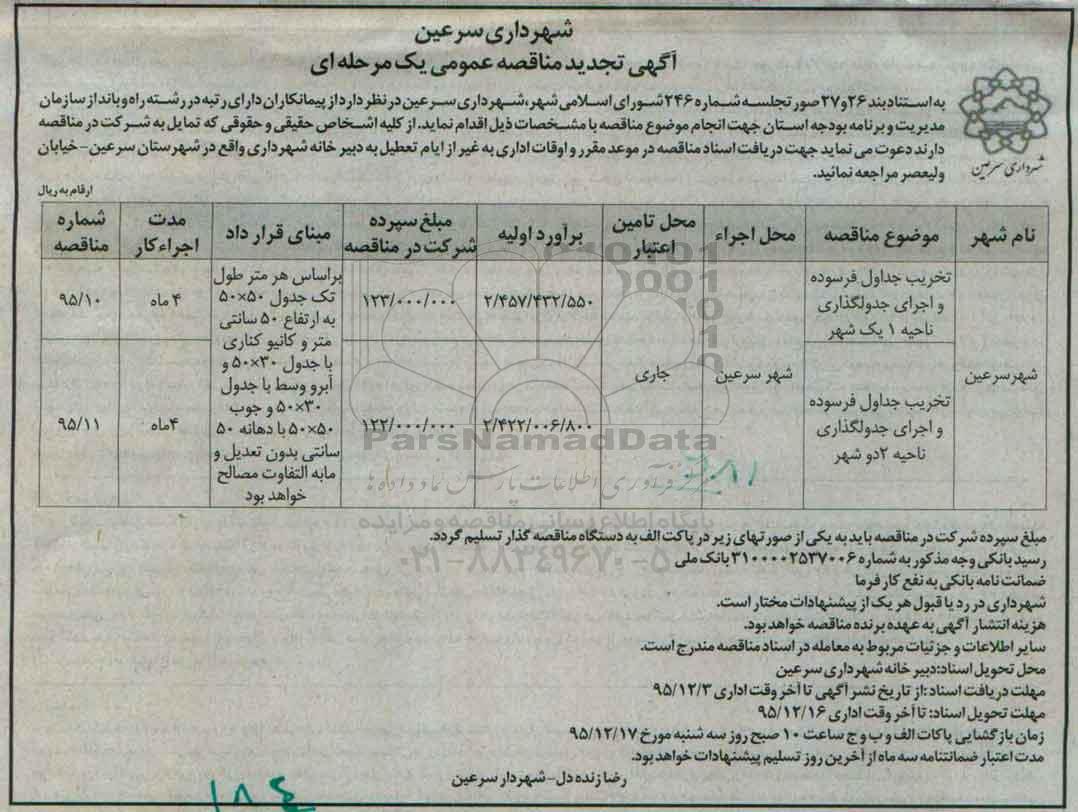 شهرداری سرعین
آگهی تجدید مناقصه عمومی یک مرحله ای
به استناد بند ۲۶و۲۷ صورتجلسه شماره ۲۴۶ شورای اسلامی شهر، شهرداری سرعین در نظر دارد از پیمانکاران دارای رتبه در رشته راه و باند از سازمان
مدیریت و برنامه بودجه استان جهت انجام موضوع مناقصه با مشخصات ذیل اقدام نماید. از کلیه اشخاص حقیقی و حقوقی که تمایل به شرکت در مناقصه
دارند دعوت می نماید جهت دریافت اسناد مناقصه در موعد مقرر و اوقات اداری به غیر از ایام تعطیل به دبیر خانه شهرداری واقع در شهرستان سرعین-خیابان
ولیعصر مراجعه نمائید.
شهرداری سرعین
ارقام به ریال
نام شهر
موضوع مناقصه
محل اجراء
محل تامین
اعتبار
برآورد اولیه
مبلغ سپرده
شرکت در مناقصه
مبنای قرار داد
مدت
اجراء کار
شماره
مناقصه
شهرسرعین
تخریب جداول فرسوده
و اجرای جدولگذاری
ناحیه ۱ یک شهر
تخریب جداول فرسوده
و اجرای جدولگذاری
ناحیه ۲دو شهر
شهر سرعین
جاری
۲/۴۵۷/۴۳۲/۵۵۰
۲/۴۲۲/۰۰۶/۸۰۰
۱۲۳/۰۰۰/۰۰۰
۱۲۲/۰۰۰/۰۰۰
براساس هر متر طول
تک جدول ۵۰×۵۰
به ارتفاع ۵۰ سانتی
متر و کانیو کناری
با جدول ۳۰×۵۰ و
آبرو وسط با جدول
۳۰×۵۰ و جوب
۵۰×۵۰ با دهانه ۵۰
سانتی بدون تعدیل و
مابه التفاوت مصالح
خواهد بود
۴ ماه
۴ماه
۹۵/۱۰
۹۵/۱۱
ParsNamadData
فرآوری اطلاعات پارس نماد داده ها
پایگاه اطلاع رسانی مناقصه و مزایده
۰۲۱-۸۸۳۴۹۶۷۰-۵
مبلغ سپرده شرکت در مناقصه باید به یکی از صورتهای زیر در پاکت الف به دستگاه مناقصه گذار تسلیم گردد.
رسید بانکی وجه مذکور به شماره ۳۱۰۰۰۰۲۵۳۷۰۰۶ بانک ملی
ضمانت نامه بانکی به نفع کار فرما
شهرداری در رد یا قبول هر یک از پیشنهادات مختار است.
هزینه انتشار آگهی به عهده برنده مناقصه خواهد بود.
سایر اطلاعات و جزئیات مربوط به معامله در اسناد مناقصه مندرج است.
محل تحویل اسناد:دبیر خانه شهرداری سرعین
مهلت دریافت اسناد :از تاریخ نشر آگهی تا آخر وقت اداری ۹۵/۱۲/۳
مهلت تحویل اسناد: تا آخر وقت اداری ۹۵/۱۲/۱۶
زمان بازگشایی پاکات الف و ب و ج ساعت ۱۰ صبح روز سه شنبه مورخ ۹۵/۱۲/۱۷
مدت اعتبار ضمانتنامه سه ماه از آخرین روز تسلیم پیشنهادات خواهد بود.
رضا زنده دل-شهردار سرعین